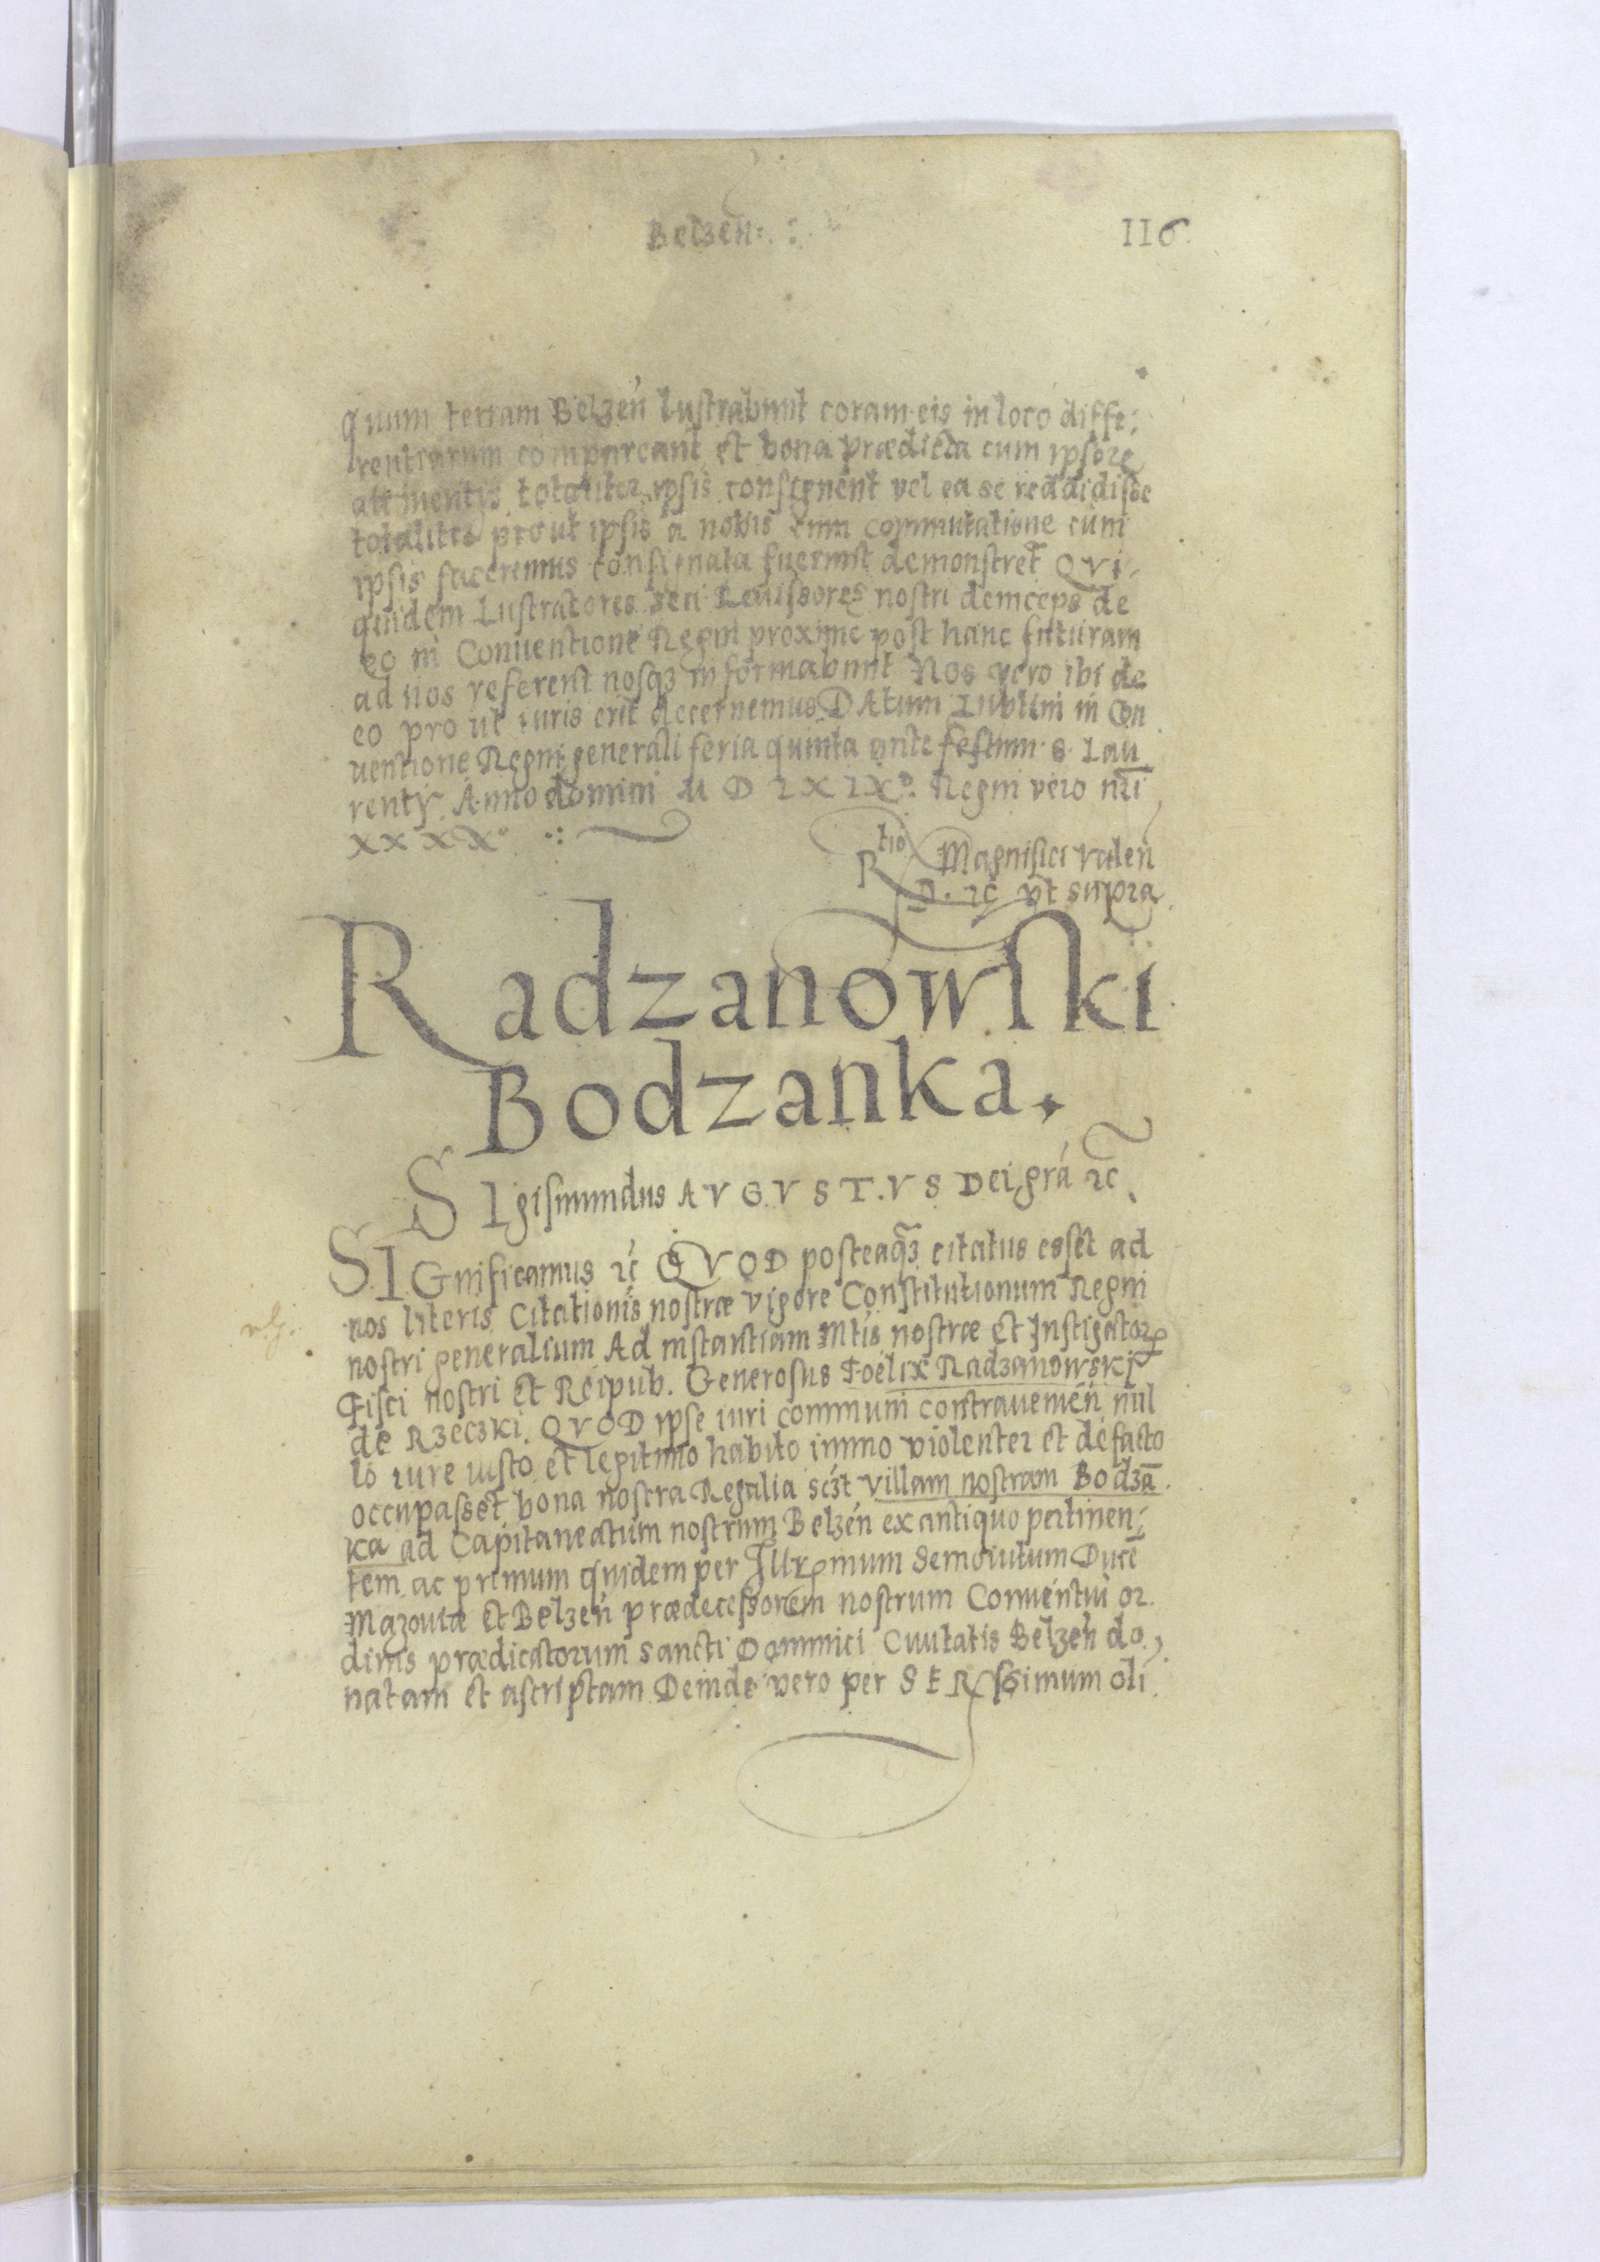 Belzen̄.
116
quum terram Belzen̄ lustrabunt coram eis in loco diffe:
rentiarum compareant et bona prædicta cum ipsorꝝ
attinentijs totaliter ipsis consignent vel ea se reddidisse
totaliter prout ipsis a nobis cum commutatione cum
ipsis faceremus consignata fuerunt demonstret QVI
quidem Lustratores seu Reuisores nostri deinceps de
eo in Conuentione Regni proxime post hanc futuram
ad nos referent nosqꝫ informabunt Nos vero ibi de
eo pro ut iuris erit decernemus DAtum Lublini in Con
uentione Regni generali feria quinta ante festum S. Lau
rentij Anno domini M D LX IXº. Regni vero nr̄i
XXXXº
Rtio Magnifici Valen̄
D. ꝛc̄ vt supra
Radzanowſki
Bodzanka.
SIgiſmundus AVGVSTVS Dei gr̄a ꝛc̄
SIGnificamus ꝛc̄ QVOD posteaqꝫ citatus esset ad
nos literis Citationis nostræ vigore Constitutionum Regni
nostri generalium Ad instantiam Mtis nostræ et Instigatorꝝ
Fisci nostri et Reipub. Generosus Foelix Radzanowski
de Rzeczki. QVOD ipse iuri communi contrauenien̄ nul
lo iure iusto et legitimo habito immo violenter et defacto
occupasset bona nostra Regalia scꝫt villam nostram Bodzā
ka ad Capitaneatum nostrum Belzen̄ ex antiquo pertinen:
tem ac primum quidem per Jllr̄mum Semouitum Ducē
Mazouiæ et Belzen̄ prædecessorem nostrum Conuentui or
dinis prædicatorum sancti Dominici Ciuitatis Belzen̄ do,
natam et ascriptam Deinde vero per SERssimum oli